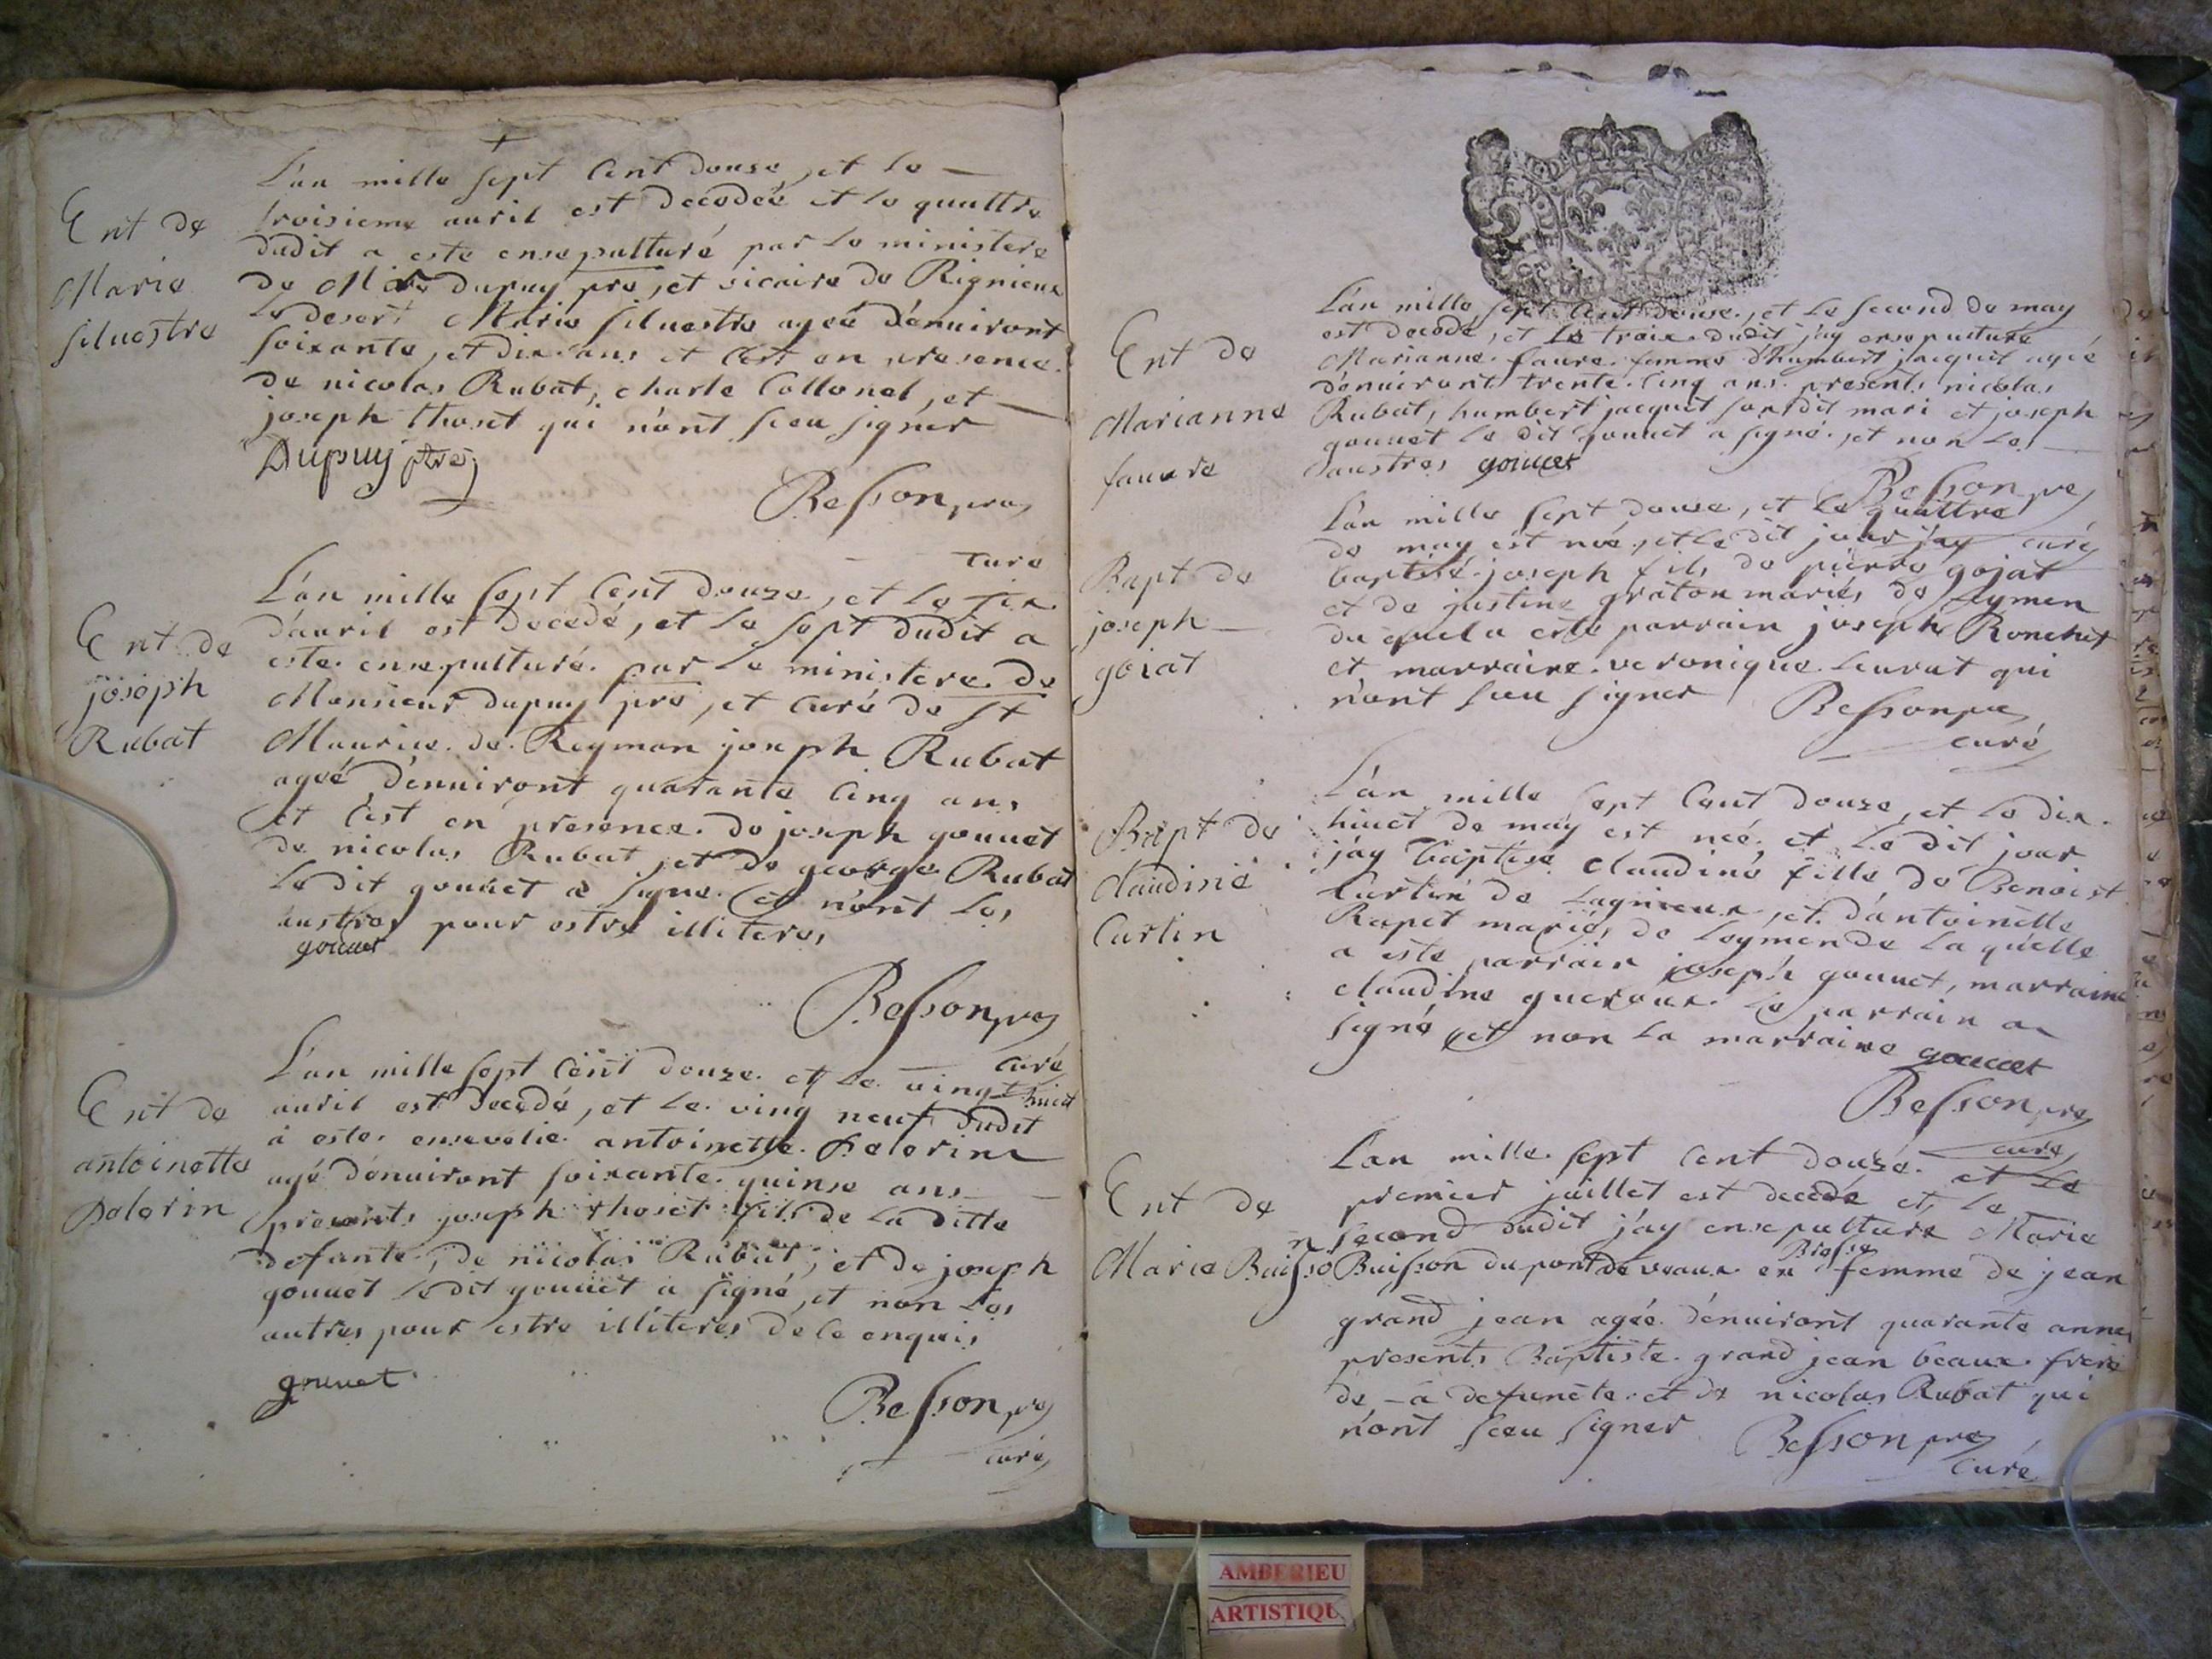 Ent de
Marie
siluestre
L'an mille sept Cent douse, et le
troisieme auril est decedée et le quattre
dudit a este ensepulturé par le ministere
de Mire Dupuy pre, et vicaire de Rignieux
le desert Marie siluestre ageé d'enuiront
soixante, et dix ans et c'est en presence
de nicolas Rubat, charle Collonel, et
joseph thoset qui n'ont sceu signér
Dupuy ptre
Besson pre
curé
Ent de
joseph
Rubat
L'an mille sept Cent douze, et le six
d'auril est decedé, et le sept dudit a
este ensepulturé par le ministere de
Monsieur dupuy pre, et curé de st
Maurice de Reyman joseph Rubat
ageé d'enuiront quarante cinq ans
et c'est en presence de joseph gouuet
de nicolas Rubat, et de george Rubat
le dit gouuet a signe et n'ont les
austres pour estre illiteres
gouuet
Besson pre
curé
Ent de
antoinette
Pelerin
L'an mille sept Cent douze et le uingt huict
auril est decedé, et le ving neuf dudit
à este enseuelie antoinette Pelerin
agé d'enuiront soixante quinse ans
presents joseph thoset fils de la ditte
defante, de nicolas Rubat, et de joseph
gouuet le dit gouuet a signé, et non les
autres pour estre illiteres de ce enquis
gouuet
Besson pre
curé
Ent de
Marianne
faure
L'an mille sept Cent douse, et le second de may
est decedé, et le troix dudit j'ay ensepulture
Marianne faure femme d'humbert jacquet ageé
d'enuiront trente cinq ans presents nicolas
Rubat, humbert jacquet sondit mari et joseph
gouuet le dit gouuet a signé, et non les
austres gouuet
Besson pre
curé
Bapt de
joseph
goiat
L'an mille sept douse, et le quattre
de may est neé, et le dit jour j'ay
baptisé joseph fils de pierre gojat
et de justine graton mariés de leymen
du quel a este parrain joseph Ronchet
et marraine veronique leurat qui
n'ont sceu signer
Besson pre
curé
Bapt de
claudine
Curtin
L'an mille sept Cent douze, et le dix
huict de may est neé, et le dit jour
j'ay baptisé claudine fille de Benoist
Curtin de Lagnieux, et d'antoinette
Rapet mariés de Leymen de la quelle
a este parrain joseph gouuet, marraine
claudine le parrain a
signé et non la marraine gouuet
Besson pre
curé
Ent de
Marie Buisson
L'an mille sept Cent douze et le
premier juillet est decedé et le
second dudit j'ay ensepulture Marie
Buisson du pont de veaux en Bresse femme de jean
grand jean ageé d'enuiront quarante annes
presents Baptiste grand jean beaux frere
de la defuncte et de nicolas Rubat qui
n'ont sceu signer
Besson pre
curé
AMBERIEU
ARTISTIQU